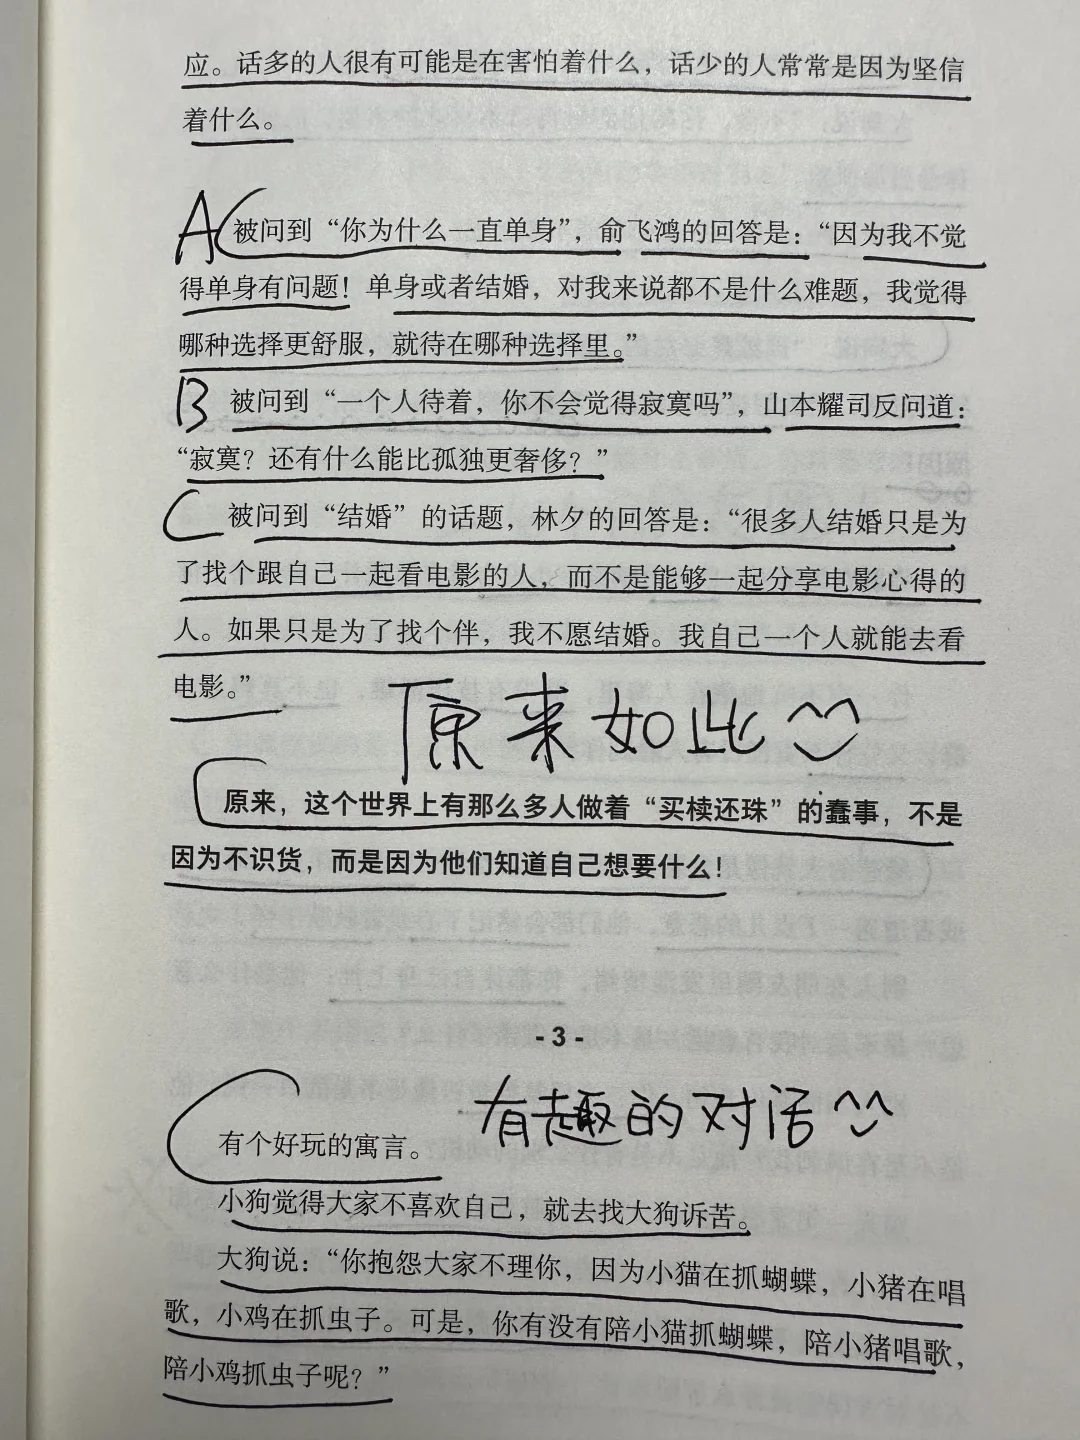 应。话多的人很有可能是在害怕着什么，话少的人常常是因为坚信
着什么。
A 被问到“你为什么一直单身”，俞飞鸿的回答是：“因为我不觉
得单身有问题！单身或者结婚，对我来说都不是什么难题，我觉得
哪种选择更舒服，就待在哪种选择里。”
B 被问到“一个人待着，你不会觉得寂寞吗”，山本耀司反问道：
“寂寞？还有什么能比孤独更奢侈？”
C 被问到“结婚”的话题，林夕的回答是：“很多人结婚只是为
了找个跟自己一起看电影的人，而不是能够一起分享电影心得的
人。如果只是为了找个伴，我不愿结婚。我自己一个人就能去看
电影。”
原来如此
原来，这个世界上有那么多人做着“买椟还珠”的蠢事，不是
因为不识货，而是因为他们知道自己想要什么！
- 3 -
有趣的对话
有个好玩的寓言。
小狗觉得大家不喜欢自己，就去找大狗诉苦。
大狗说：“你抱怨大家不理你，因为小猫在抓蝴蝶，小猪在唱
歌，小鸡在抓虫子。可是，你有没有陪小猫抓蝴蝶，陪小猪唱歌，
陪小鸡抓虫子呢？”